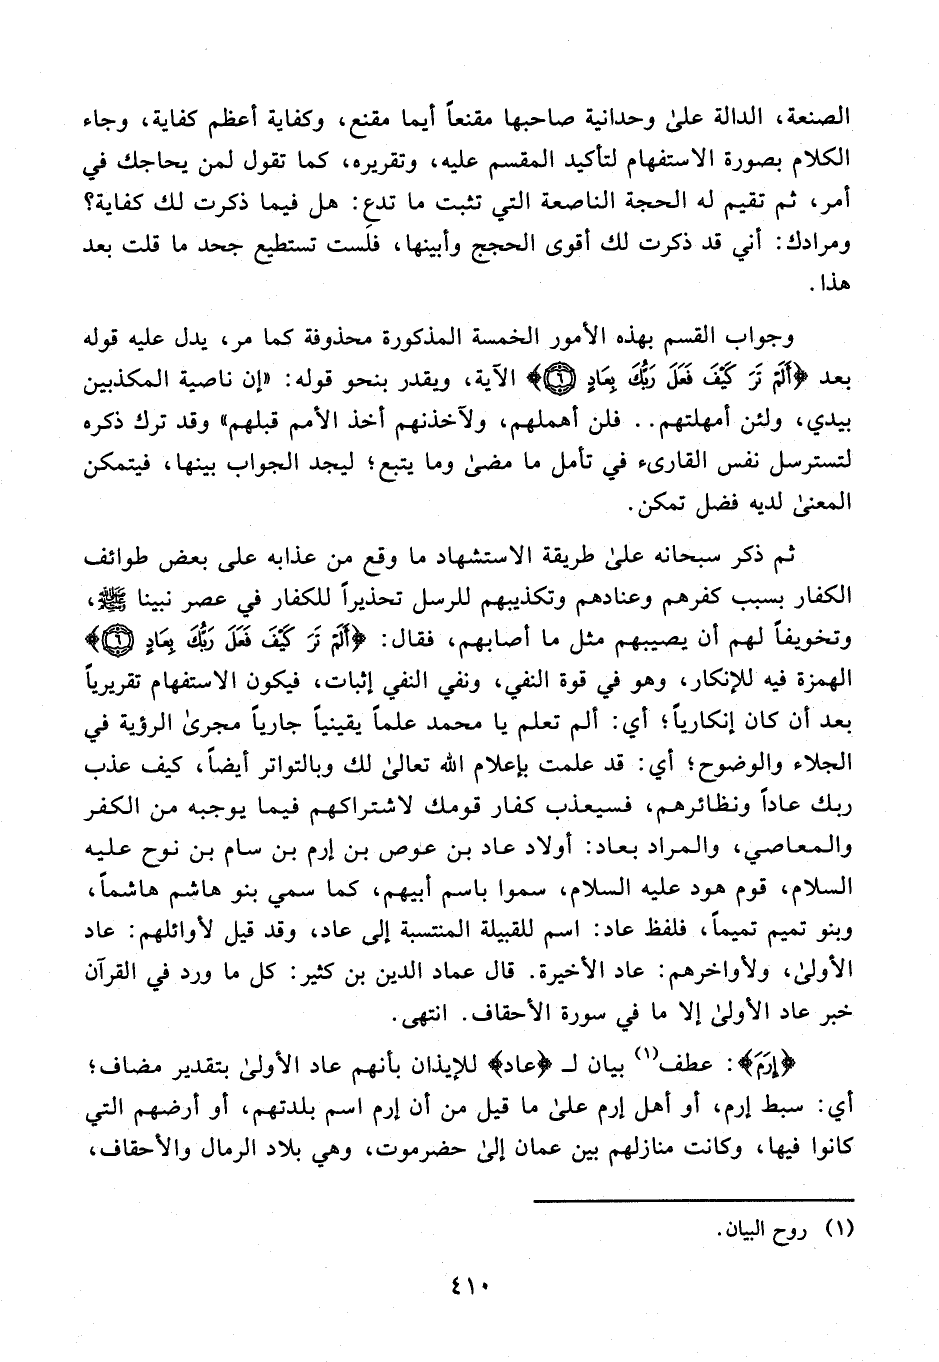 الصنعة، الدالة علىٰ وحدانية صاحبها مقنعاً أيما مقنع، وكفاية أعظم كفاية، وجاء
الكلام بصورة الاستفهام لتأكيد المقسم عليه، وتقريره، كما تقول لمن يحاجك في
أمر، ثم تقيم له الحجة الناصعة التي تثبت ما تدع: هل فيما ذكرت لك كفاية؟
ومرادك: أني قد ذكرت لك أقوى الحجج وأبينها، فلَست تستطيع جحد ما قلت بعد
هذا.
وجواب القسم بهذه الأمور الخمسة المذكورة محذوفة كما مر، يدل عليه قوله
بعد ﴿أَلَمْ تَرَ كَيْفَ فَعَلَ رَبُّكَ بِعَادٍ ٦﴾ الآية، ويقدر بنحو قوله: «إن ناصية المكذبين
بيدي، ولئن أمهلتهم.. فلن أهملهم، ولآخذنهم أخذ الأمم قبلهم» وقد ترك ذكره
لتسترسل نفس القارىء في تأمل ما مضىٰ وما يتبع؛ ليجد الجواب بينها، فيتمكن
المعنىٰ لديه فضل تمكن.
ثم ذكر سبحانه علىٰ طريقة الاستشهاد ما وقع من عذابه على بعض طوائف
الكفار بسبب كفرهم وعنادهم وتكذيبهم للرسل تحذيراً للكفار في عصر نبينا ﷺ،
وتخويفاً لهم أن يصيبهم مثل ما أصابهم، فقال: ﴿أَلَمْ تَرَ كَيْفَ فَعَلَ رَبُّكَ بِعَادٍ ٦﴾
الهمزة فيه للإنكار، وهو في قوة النفي، ونفي النفي إثبات، فيكون الاستفهام تقريرياً
بعد أن كان إنكارياً؛ أي: ألم تعلم يا محمد علماً يقينياً جارياً مجرىٰ الرؤية في
الجلاء والوضوح؛ أي: قد علمت بإعلام الله تعالىٰ لك وبالتواتر أيضاً، كيف عذب
ربك عاداً ونظائرهم، فسيعذب كفار قومك لاشتراكهم فيما يوجبه من الكفر
والمعاصي، والمراد بعاد: أولاد عاد بن عوص بن إرم بن سام بن نوح عليه
السلام، قوم هود عليه السلام، سموا باسم أبيهم، كما سمي بنو هاشم هاشماً،
وبنو تميم تميماً، فلفظ عاد: اسم للقبيلة المنتسبة إلى عاد، وقد قيل لأوائلهم: عاد
الأولىٰ، ولأواخرهم: عاد الأخيرة. قال عماد الدين بن كثير: كل ما ورد في القرآن
خبر عاد الأولىٰ إلا ما في سورة الأحقاف. انتهى.
﴿إِرَمَ﴾: عطف(١) بيان لـ ﴿عاد﴾ للإيذان بأنهم عاد الأولىٰ بتقدير مضاف؛
أي: سبط إرم، أو أهل إرم علىٰ ما قيل من أن إرم اسم بلدتهم، أو أرضهم التي
كانوا فيها، وكانت منازلهم بين عمان إلىٰ حضرموت، وهي بلاد الرمال والأحقاف،
(١) روح البيان.
٤١٠